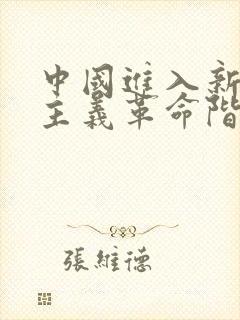 中國進入新
主義革命階
張維德